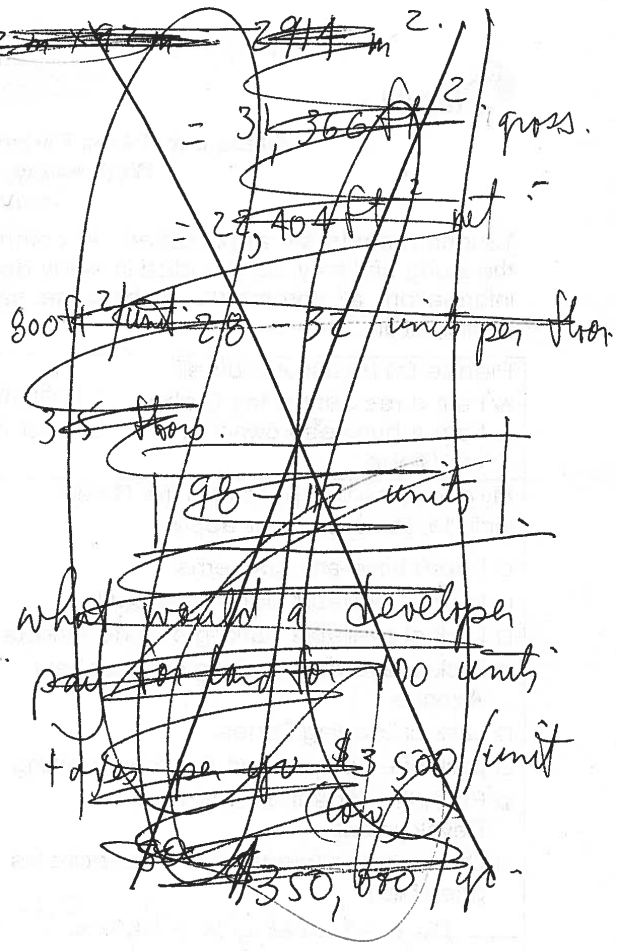 m × 97 m 2914 m².
= 31,366 ft² gross.
= 22,404 ft² net -
800 ft²/unit 28 - 32 units per floor.
3.5 floors.
98 112 units
what would a developer
pay for land for 100 units
taxes per yr $3500/unit
(low)
$350,000/yr.